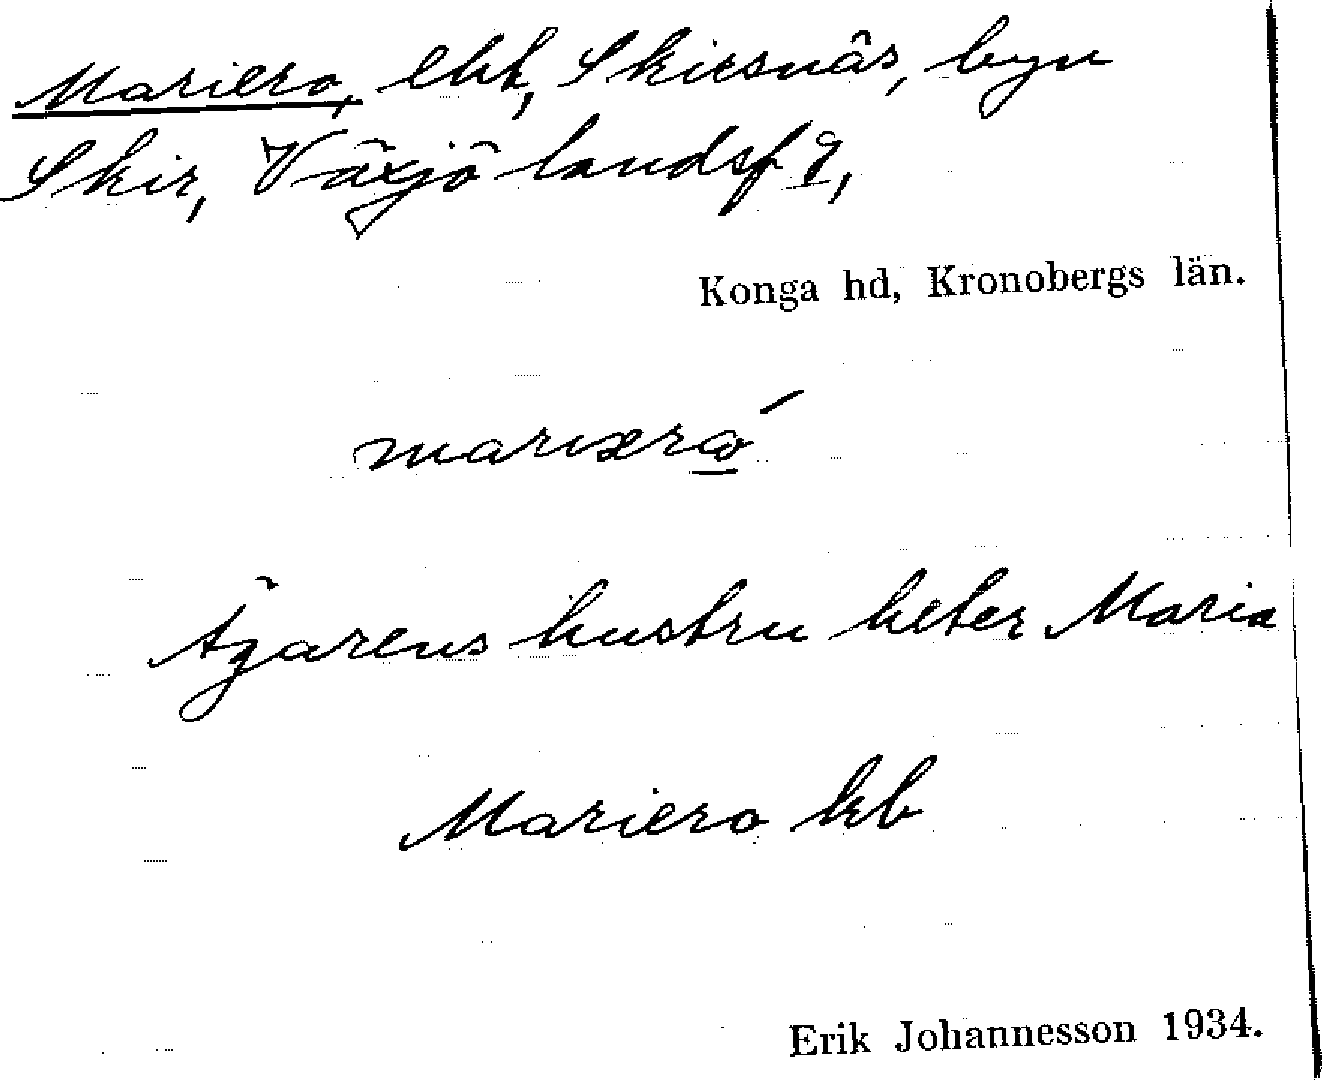 Mariero, ebt, Skirsnäs, byn
Skir, Växjö landsf 9,
Konga hd, Kronobergs län.
Ägarens hustru heter Maria
Mariero kb
Erik Johannesson 1934.